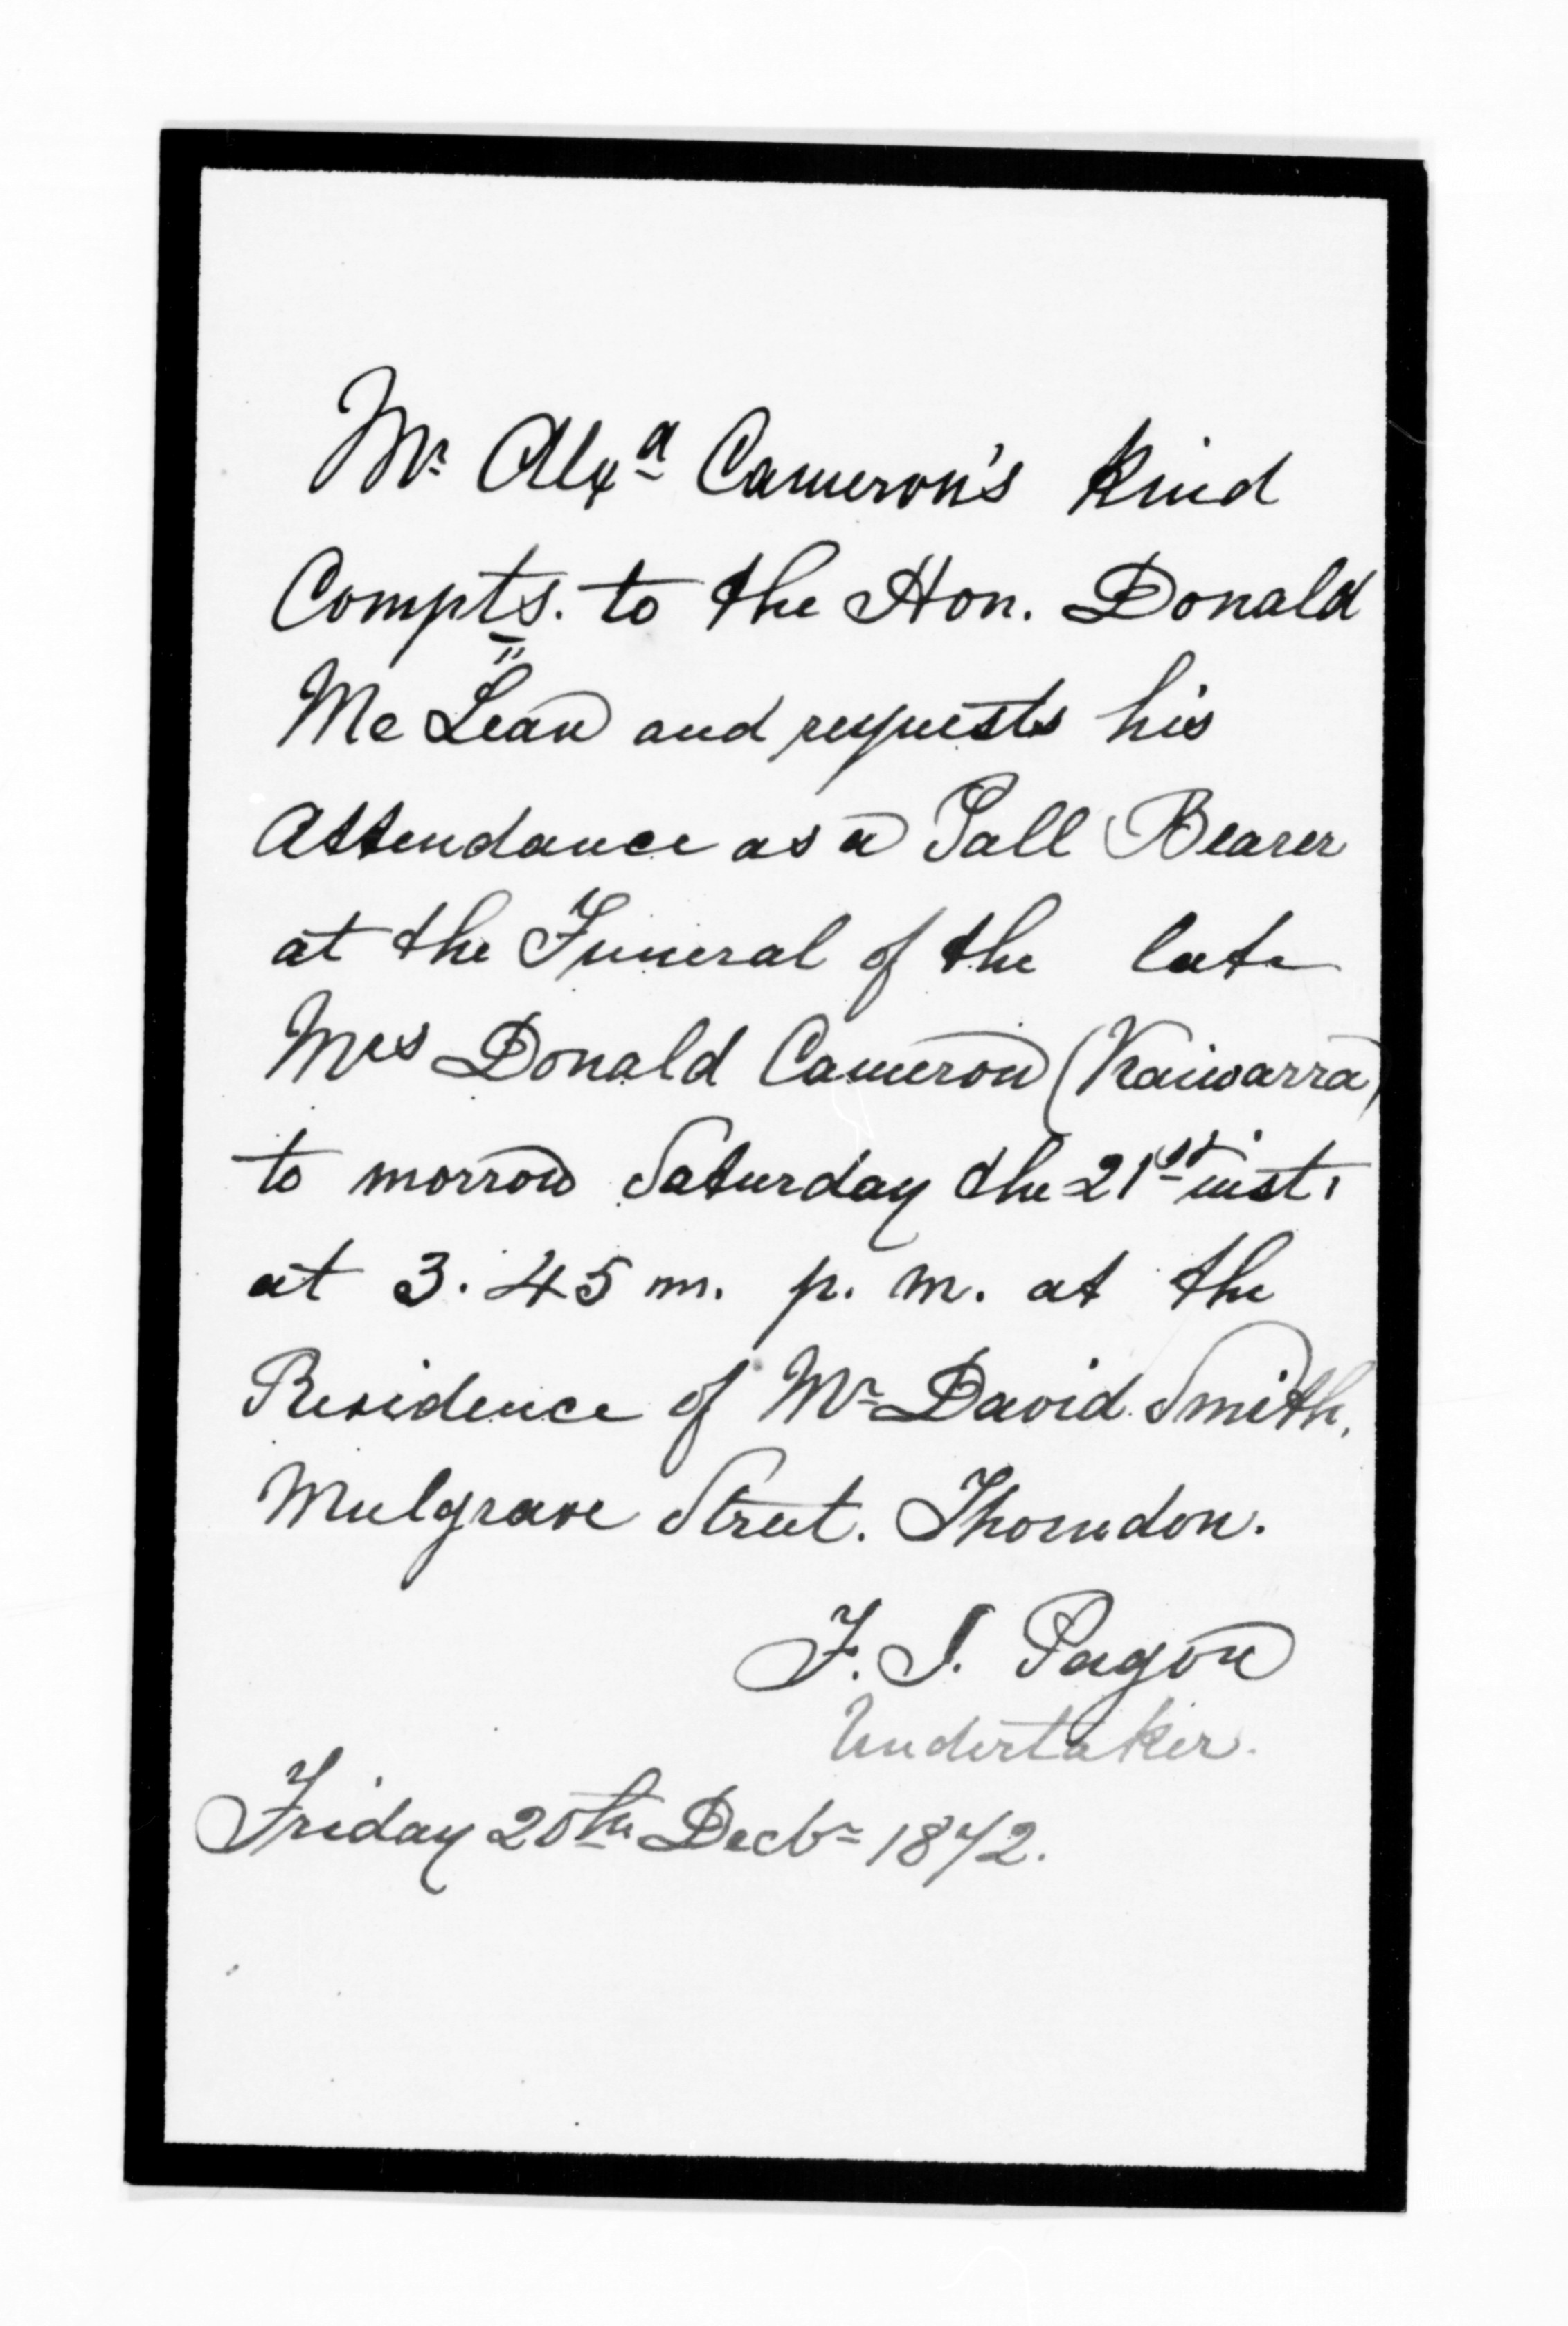 Mr Alexa Cameron's kind
Compts. to the Hon. Donald
McLean and requests his
Attendance as a Pall Bearer
at the Funeral of the late
Mrs Donald Cameron (Kaiwarra)
to morrow Saturday the 21st inst.
at 3.45 m. p. m. at the
Residence of Mr David Smith,
Mulgrave Street. Thorndon.
F. J. Pagon
Undertaker.
Friday 20th Decbr 1872.